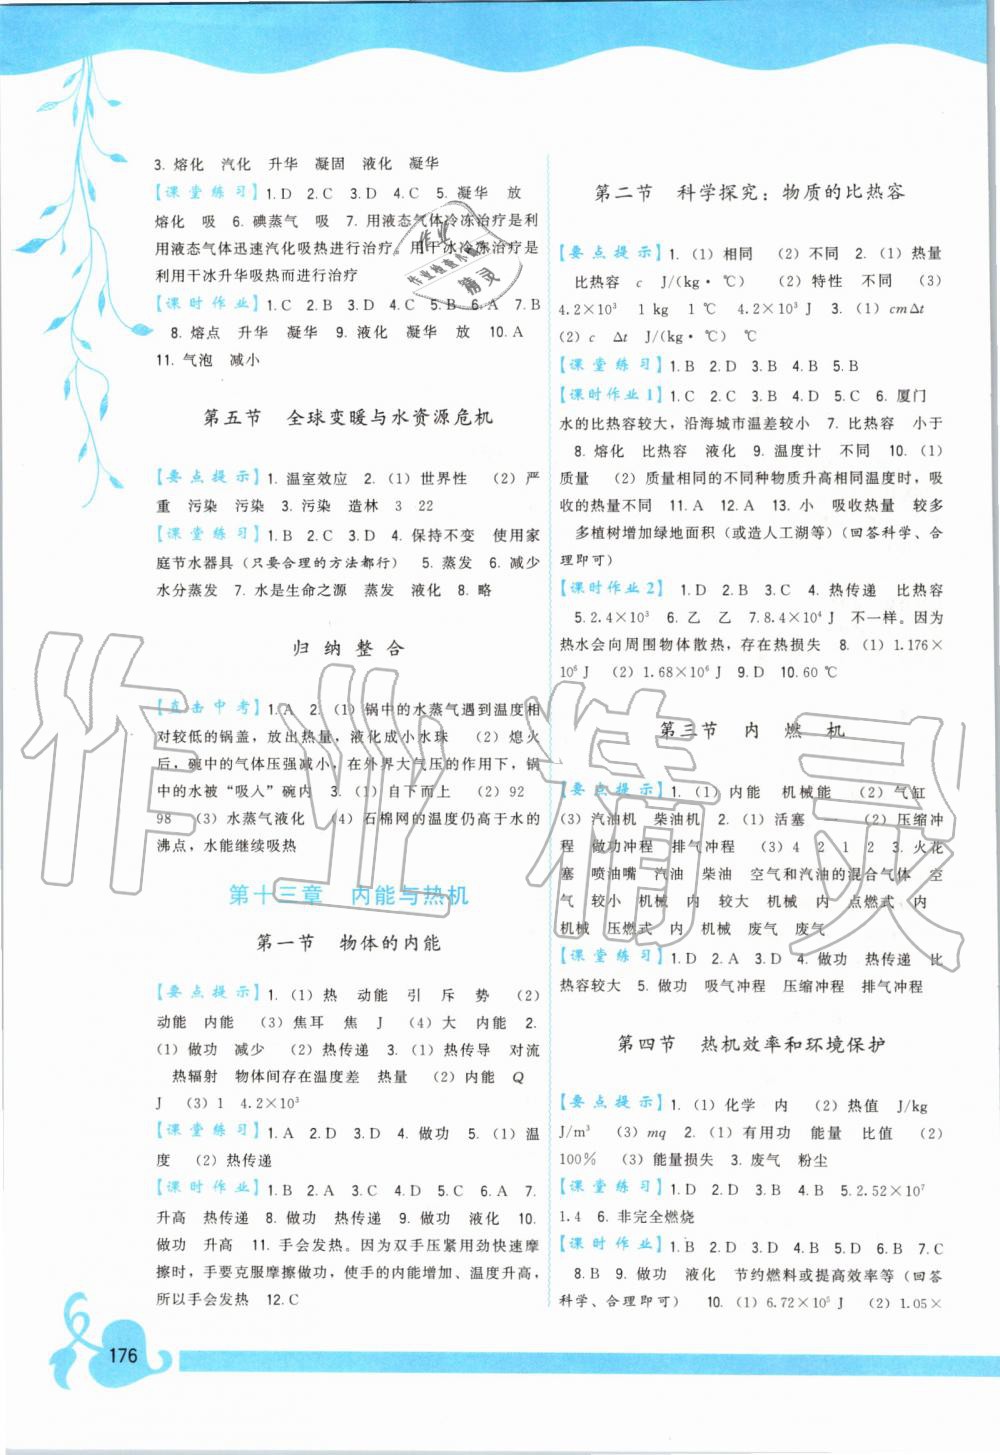 3. 熔化 汽化 升华 凝固 液化 凝华
【课堂练习】1. D 2. C 3. D 4. C 5. 凝华 放
熔化 吸 6. 碘蒸气 吸 7. 用液态气体冷冻治疗是利
用液态气体迅速汽化吸热进行治疗,用干冰冷冻治疗是
利用干冰升华吸热而进行治疗
【课时作业】1. C 2. B 3. D 4. C 5. B 6. A 7. B
8. 熔点 升华 凝华 9. 液化 凝华 放 10. A
11. 气泡 减小
第五节 全球变暖与水资源危机
【要点提示】1. 温室效应 2. (1) 世界性 (2) 严
重 污染 污染 3. 污染 造林 3 22
【课堂练习】1. B 2. C 3. D 4. 保持不变 使用家
庭节水器具(只要合理的方法都行) 5. 蒸发 6. 减少
水分蒸发 7. 水是生命之源 蒸发 液化 8. 略
归纳整合
【直击中考】1. A 2. (1) 锅中的水蒸气遇到温度相
对较低的锅盖,放出热量,液化成小水珠 (2) 熄火
后,碗中的气体压强减小,在外界大气压的作用下,锅
中的水被“吸人”碗内 3. (1) 自下而上 (2) 92
98 (3) 水蒸气液化 (4) 石棉网的温度仍高于水的
沸点,水能继续吸热
第十三章 内能与热机
第一节 物体的内能
【要点提示】1. (1) 热 动能 引 斥 势 (2)
动能 内能 (3) 焦耳 焦 J (4) 大 内能 2.
(1) 做功 减少 (2) 热传递 3. (1) 热传导 对流
热辐射 物体间存在温度差 热量 (2) 内能 Q
J (3) 1 4.2×10³
【课堂练习】1. A 2. D 3. D 4. 做功 5. (1) 温
度 (2) 热传递
【课时作业】1. B 2. A 3. C 4. D 5. C 6. A 7.
升高 热传递 8. 做功 热传递 9. 做功 液化 10.
做功 升高 11. 手会发热。因为双手压紧用劲快速摩
擦时,手要克服摩擦做功,使手的内能增加、温度升高,
所以手会发热 12. C
176
第二节 科学探究:物质的比热容
【要点提示】1. (1) 相同 (2) 不同 2. (1) 热量
比热容 c J/(kg·℃) (2) 特性 不同 (3)
4.2×10³ 1 kg 1 ℃ 4.2×10³ J 3. (1) cmΔt
(2) c Δt J/(kg·℃) ℃
【课堂练习】1. B 2. D 3. B 4. B 5. B
【课时作业1】1. C 2. C 3. D 4. A 5. C 6. 厦门
水的比热容较大,沿海城市温差较小 7. 比热容 小于
8. 熔化 比热容 液化 9. 温度计 不同 10. (1)
质量 (2) 质量相同的不同种物质升高相同温度时,吸
收的热量不同 11. A 12. A 13. 小 吸收热量 较多
多植树增加绿地面积(或造人工湖等)(回答科学、合
理即可)
【课时作业2】1. D 2. B 3. C 4. 热传递 比热容
5. 2.4×10³ 6. 乙 乙 7. 8.4×10⁴ J 不一样。因为
热水会向周围物体散热,存在热损失 8. (1) 1.176×
10⁶ J (2) 1.68×10⁶ J 9. D 10. 60 ℃
第三节 内燃机
【要点提示】1. (1) 内能 机械能 (2) 气缸
(3) 汽油机 柴油机 2. (1) 活塞 一 (2) 压缩冲
程 做功冲程 排气冲程 (3) 4 2 1 2 3. 火花
塞 喷油嘴 汽油 柴油 空气和汽油的混合气体 空
气 较小 机械 内 较大 机械 内 点燃式 内
机械 压燃式 内 机械 废气 废气
【课堂练习】1. D 2. A 3. D 4. 做功 热传递 比
热容较大 5. 做功 吸气冲程 压缩冲程 排气冲程
第四节 热机效率和环境保护
【要点提示】1. (1) 化学 内 (2) 热值 J/kg
J/m³ (3) mq 2. (1) 有用功 能量 比值 (2)
100% (3) 能量损失 3. 废气 粉尘
【课堂练习】1. D 2. D 3. C 4. B 5. 2.52×10⁷
1.4 6. 非完全燃烧
【课时作业】1. B 2. D 3. D 4. C 5. D 6. B 7. C
8. B 9. 做功 液化 节约燃料或提高效率等(回答
科学、合理即可) 10. (1) 6.72×10⁵ J (2) 1.05×
作业精灵
作业检查小精灵